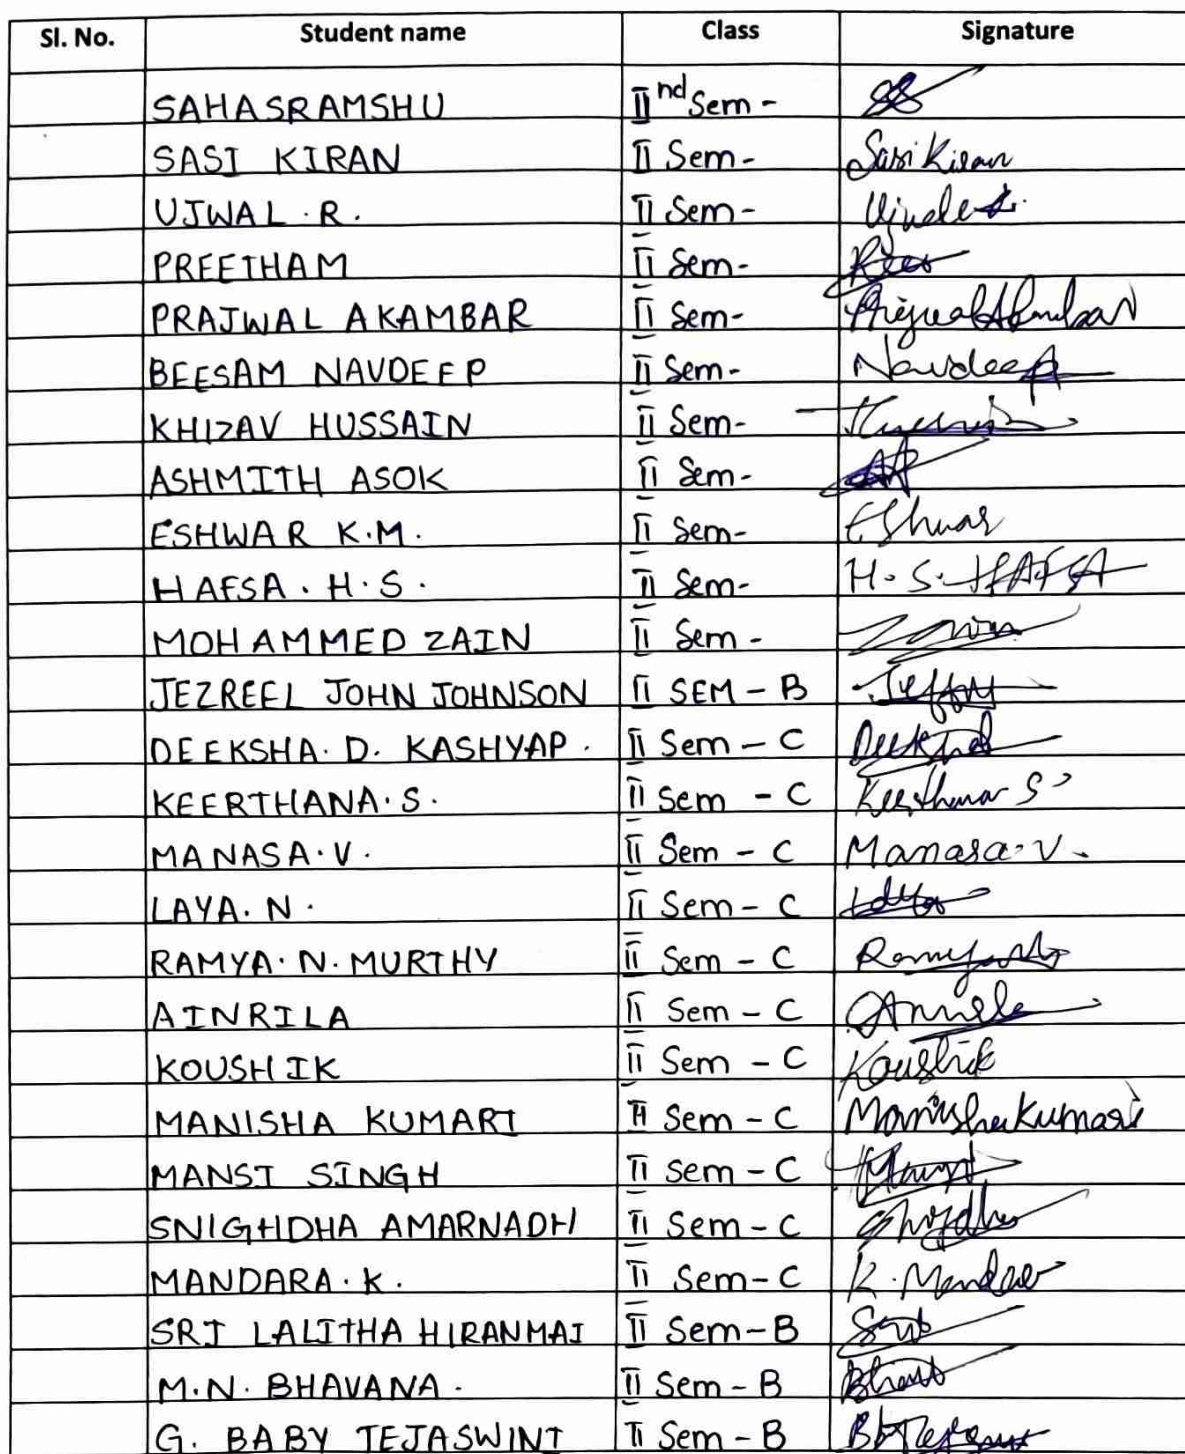 Sl. No. Student name Class Signature
SAHASRAMSHU II nd Sem -
SASI KIRAN II Sem - Sasi Kiran
UJWAL . R . II Sem -
PREETHAM II Sem -
PRAJWAL AKAMBAR II Sem -
BEESAM NAVDEEP II Sem - Navdeep
KHIZAV HUSSAIN II Sem -
ASHMITH ASOK II Sem -
ESHWAR K.M. II Sem - Eshwar
HAFSA . H . S . II Sem - H. S. HAFSA
MOHAMMED ZAIN II Sem - Zain
JEZREEL JOHN JOHNSON II SEM - B
DEEKSHA. D. KASHYAP . II Sem - C
KEERTHANA . S . II Sem - C Keerthana S
MANASA . V . II Sem - C Manasa . V .
LAYA . N . II Sem - C
RAMYA . N . MURTHY II Sem - C
AINRILA II Sem - C
KOUSHIK II Sem - C Koushik
MANISHA KUMARI II Sem - C Manisha Kumari
MANSI SINGH II Sem - C
SNIGHDHA AMARNADH II Sem - C
MANDARA . K . II Sem - C
SRI LALITHA HIRANMAI II Sem - B
M.N. BHAVANA . II Sem - B
G. BABY TEJASWINI II Sem - B